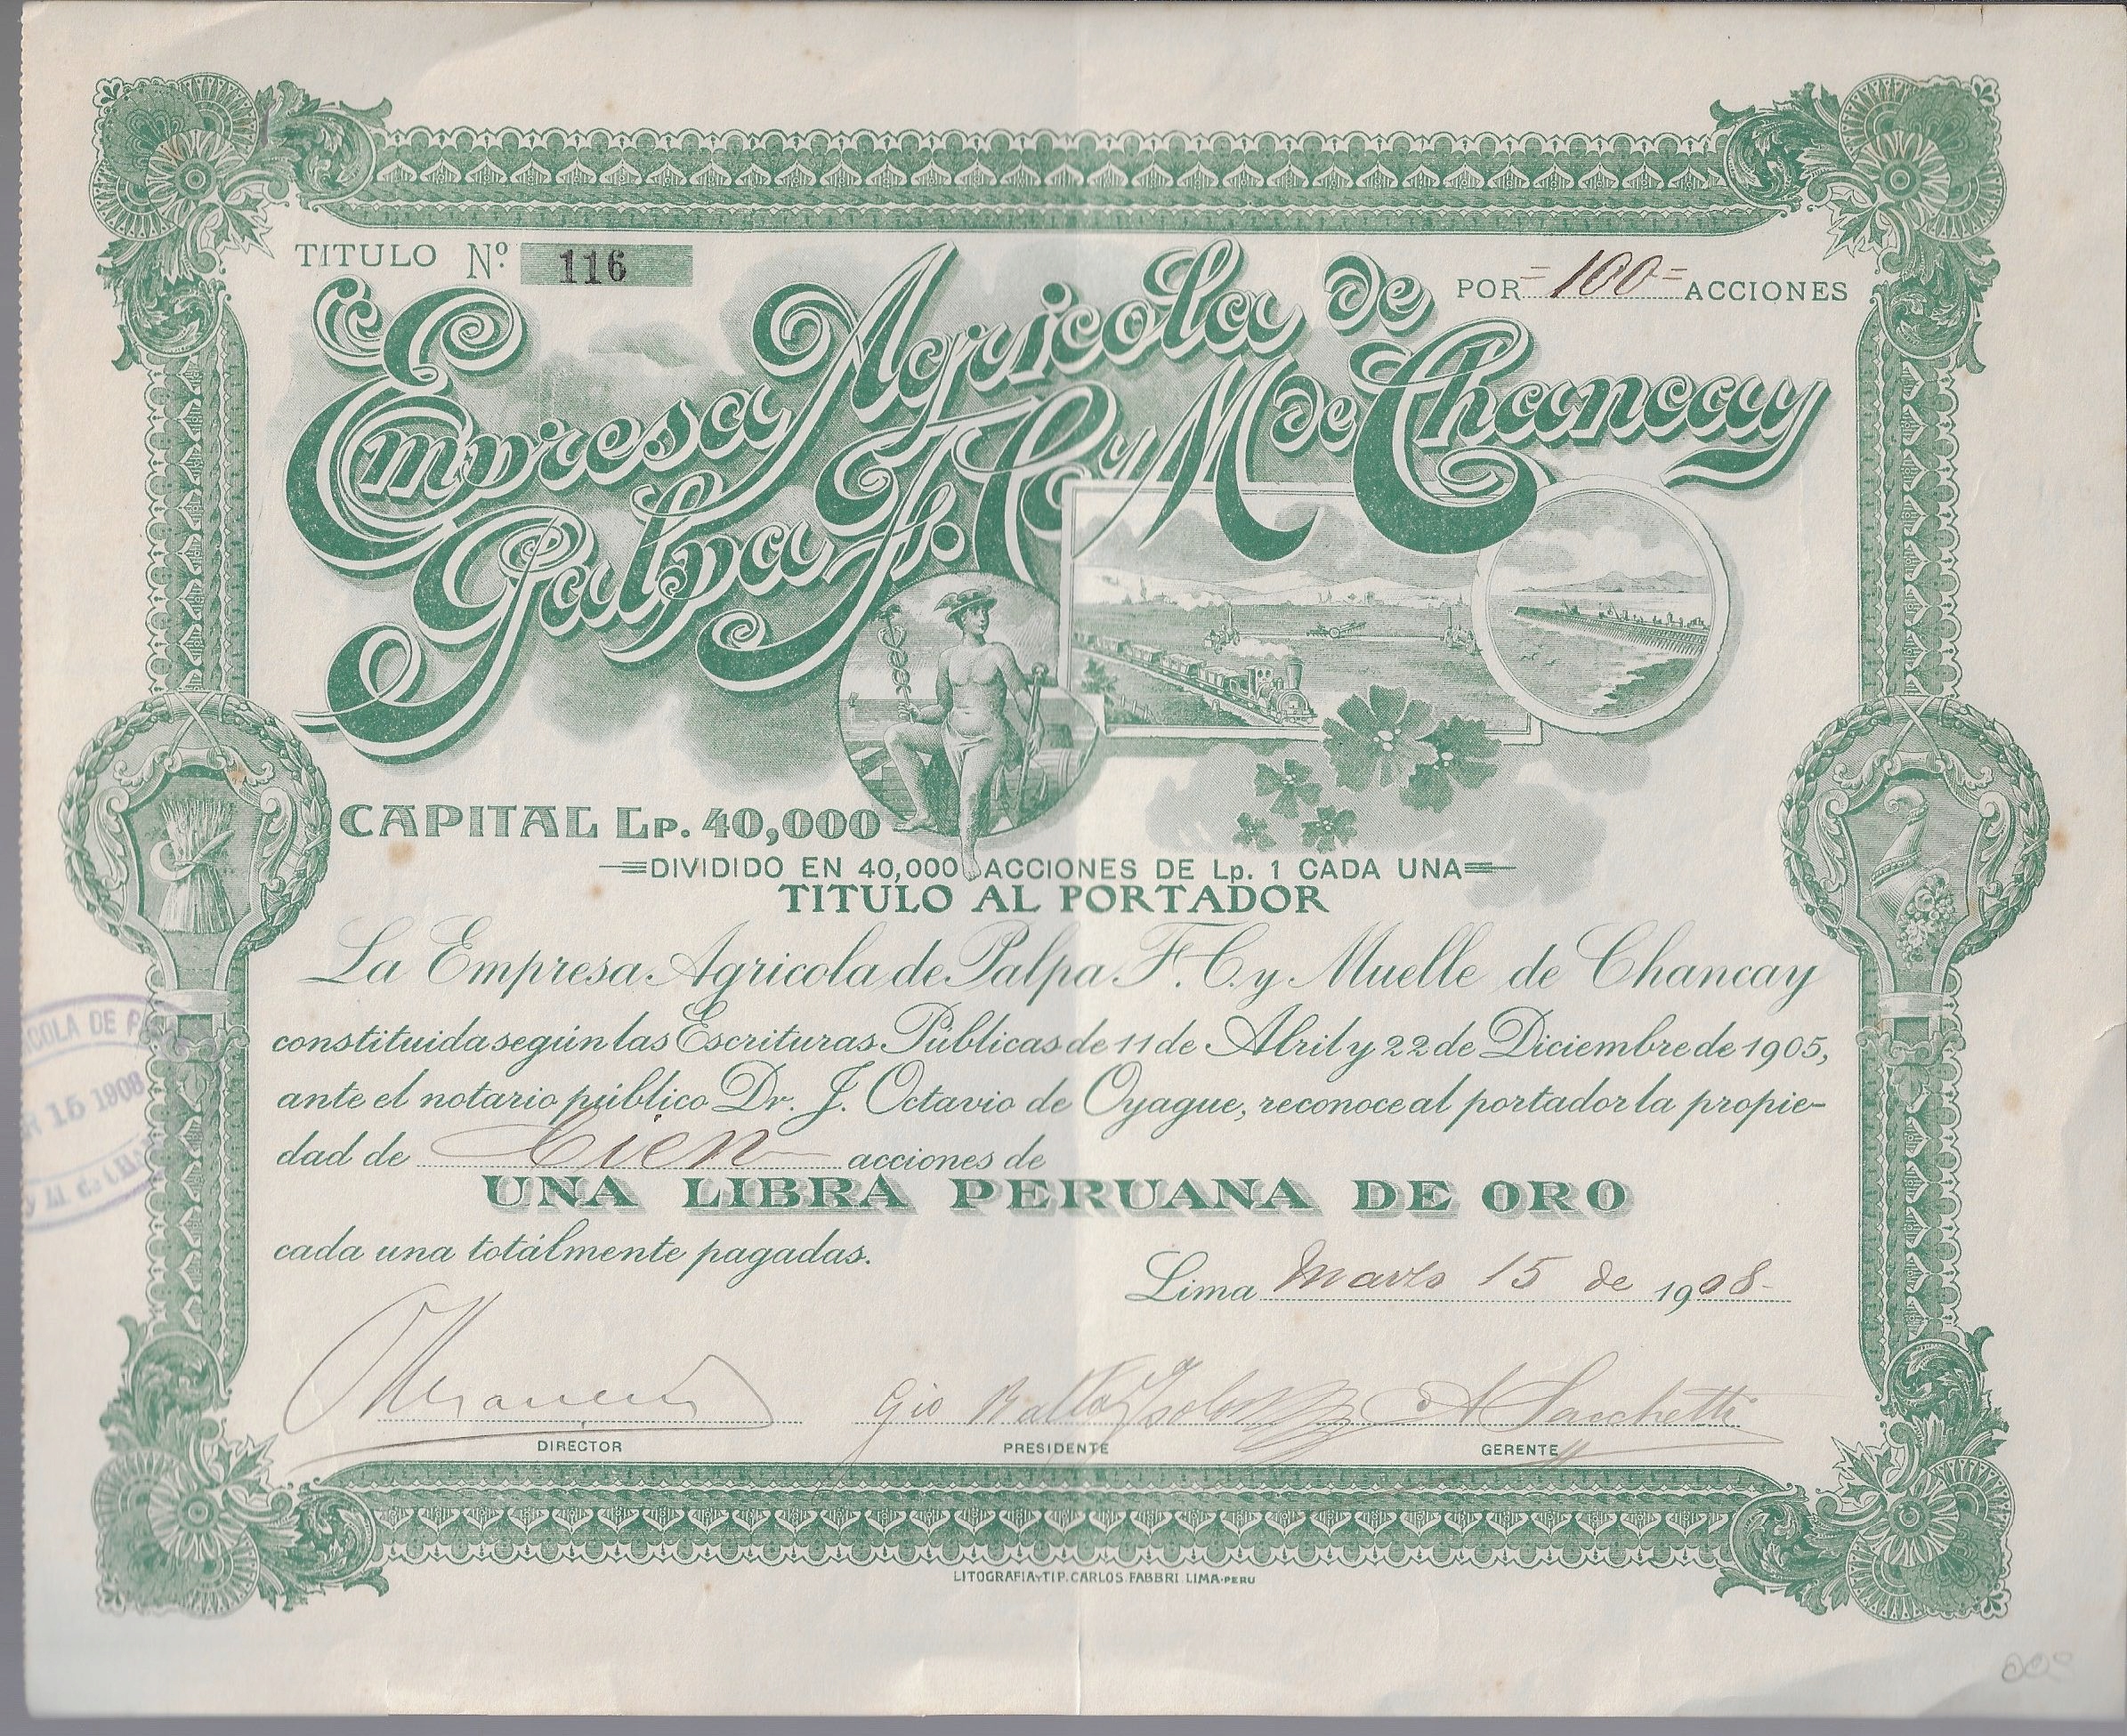 TITULO Nº 116
POR =100= ACCIONES
Empresa Agricola de
Palpa F. C. y M. de Chancay
CAPITAL Lp. 40,000
DIVIDIDO EN 40,000 ACCIONES DE Lp. 1 CADA UNA
TITULO AL PORTADOR
La Empresa Agricola de Palpa F. C. y Muelle de Chancay
constituida según las Escrituras Públicas de 11 de Abril y 22 de Diciembre de 1905,
ante el notario público Dr. J. Octavio de Oyague, reconoce al portador la propie-
dad de Cien acciones de
UNA LIBRA PERUANA DE ORO
cada una totálmente pagadas.
Lima Marzo 15 de 1908-
COLA DE P
R 15 1908
y M. de CHA
Gio Batta Isola
A Sacchetti
DIRECTOR
PRESIDENTE
GERENTE
LITOGRAFIA Y TIP. CARLOS FABBRI LIMA-PERU